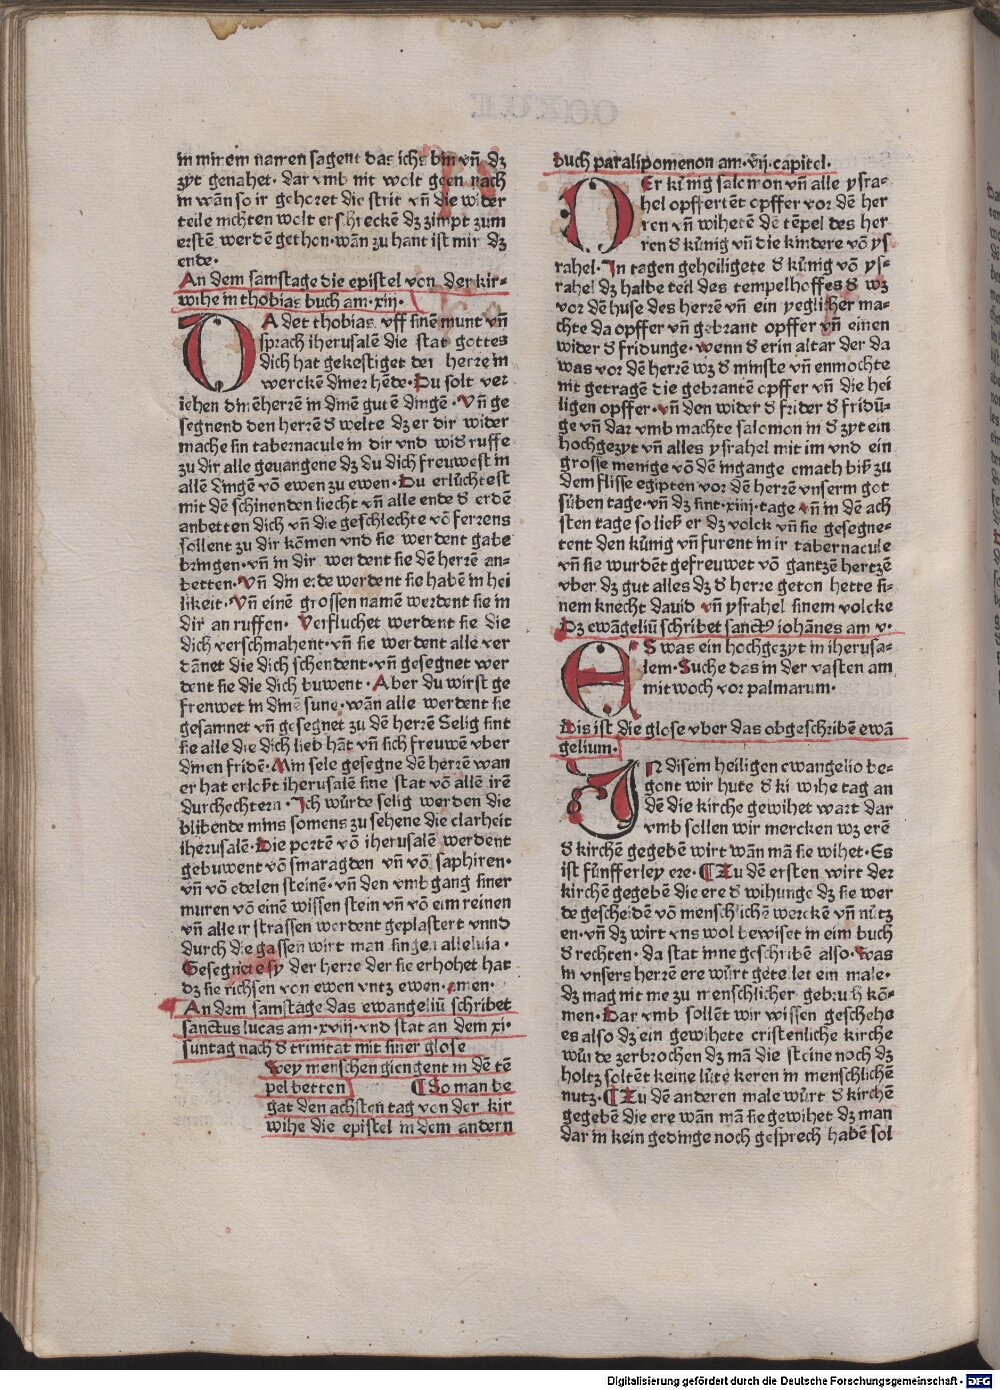 in mirem namen sagent das ichs bin vñ dz
zyt genahet. dar vmb nit wolt geen nach
in wañ so ir gehoret die strit vñ die wider
teile nichten wolt erschreckē dz zimpt zum
erstē werdē gethon. wañ zu hant ist mir dz
ende.
An dem samstage die epistel von der kir-
wihe in thobias buch am .xiij.
O Adet thobias vff sinē munt vñ
sprach iherusalē die stat gottes
dich hat gekestiget der herre in
werckē diner hēde. Du solt ver
iehen dinē herrē in dinē gutē dingē. Vñ ge
segnend den herrē d welte dz er dir wider
mache sin tabernacule in dir vnd wid ruffe
zu dir alle geuangene dz du dich freuwest in
allē dingē vō ewen zu ewen. Du erlüchtest
mit dē schinenden liecht vñ alle ende d erdē
anbetten dich vñ die geschlechte vō ferrens
sollent zu dir kōmen vnd sie werdent gabe
bringen. vñ in dir werdent sie dē herrē an-
betten. Vñ din erde werdent sie habē in hei
likeit. Vñ einē grossen namē werdent sie in
dir an ruffen. Verfluchet werdent sie die
dich verschmahent. vñ sie werdent alle ver
dānet die dich schendent. vñ gesegnet wer
dent sie die dich buwent. Aber du wirst ge
frenwet in dinē sune. wañ alle werdent sie
gesamnet vñ gesegnet zu dē herrē Selig sint
sie alle die dich lieb hāt vñ sich freuwē vber
dinen fridē. Min sele gesegne dē herrē wan
er hat erloßt iherusalē sine stat vō allē irē
durchechtern. Ich würde selig werden die
blibende mins somens zu sehene die clarheit
iherusalē. Die portē vō iherusalē werdent
gebuwent vō smaragden vñ vō saphiren.
vñ vō edelen steinē. vñ den vmb gang siner
muren vō einē wissen stein vñ vō eim reinen
vñ alle ir strassen werdent geplastert vnnd
durch die gassen wirt man singen alleluia.
Gesegnet esy der herre der sie erhohet hat
dz sie richsen von ewen vntz ewen. amen.
An dem samstage das ewangeliū schribet
sanctus lucas am .xviij. vnd stat an dem xi.
suntag nach d trinitat mit siner glose
Zwey menschen giengent in dē tē
pel betten ¶ So man be
gat den achsten tag von der kir
wihe die epistel in dem andern
buch paralipomenon am .vij. capitel.
D Er künig salomon vñ alle ysra-
hel opffertēt opffer vor dē her
ren vñ wihetē dē tēpel des her
ren d künig vñ die kindere vō ys
rahel. In tagen geheiligete d künig vō ys-
rahel dz halbe teil des tempelhoffes d wz
vor dē huse des herrē vñ ein yeglicher ma-
chte da opffer vñ gebrant opffer vñ einen
wider d fridunge. wenn d erin altar der da
was vor dē herrē wz d minste vñ enmochte
nit getragē die gebrantē opffer vñ die hei
ligen opffer. vñ den wider d frider d fridū-
ge vñ dar vmb machte salomon in d zyt ein
hochgezyt vñ alles ysrahel mit im vnd ein
grosse menige vō dē ingange emath biß zu
dem flisse egipten vor dē herrē vnserm got
süben tage. vñ dz sint .xiiij. tage vñ in dē ach
sten tage so ließ er dz volck vñ sie gesegne-
tent den künig vñ furent in ir tabernacule
vñ sie wurdēt gefreuwet vō gantzē hertzē
vber dz gut alles dz d herre geton hette si-
nem knecht dauid vñ ysrahel sinem volcke
Dz ewāgeliū schribet sanctꝰ iohānes am v.
ES was ein hochgezyt in iherusa-
lem. Suche das in der vasten am
mitwoch vor palmarum.
Dis ist die glose vber das obgeschribē ewā
gelium.
IN disem heiligen ewangelio be-
gont wir hute d ki wihe tag an
dē die kirche gewihet wart dar
vmb sollen wir mercken wz erē
d kirchē gegebē wirt wañ mā sie wihet. Es
ist fünfferley ere. ¶ Zu dē ersten wirt der
kirchē gegebē die ere d wihunge dz sie wer
de gescheidē vō menschlichē werckē vñ nütz
en. vñ dz wirt vns wol bewiset in eim buch
d rechten. da stat inne geschribē also. Was
in vnsers herrē ere würt geteilet ein male.
dz mag nit me zu menschlicher gebruch kō-
men. Dar vmb sollent wir wissen geschehe
es also dz ein gewihete cristenliche kirche
würde zerbrochen dz mā die steine noch dz
holtz soltēt keine lüte keren in menschlichē
nutz. ¶ Zu dē anderen male würt d kirchē
gegebē die ere wañ mā sie gewihet dz man
dar in kein gedinge noch gesprech habē sol
Digitalisierung gefördert durch die Deutsche Forschungsgemeinschaft - DFG